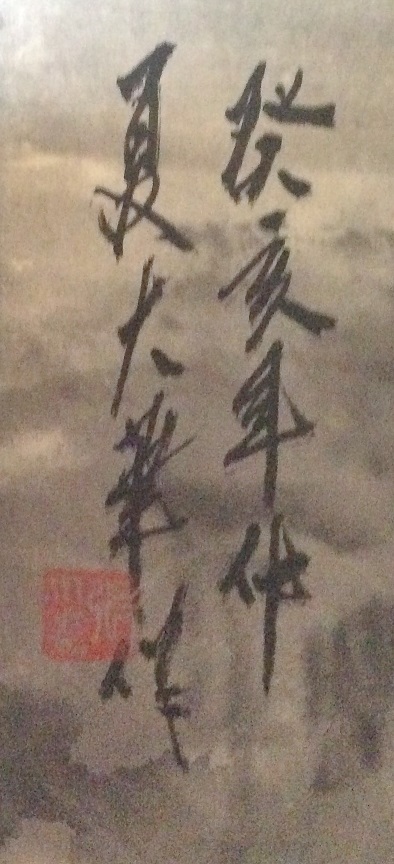 癸亥年仲
夏大業作